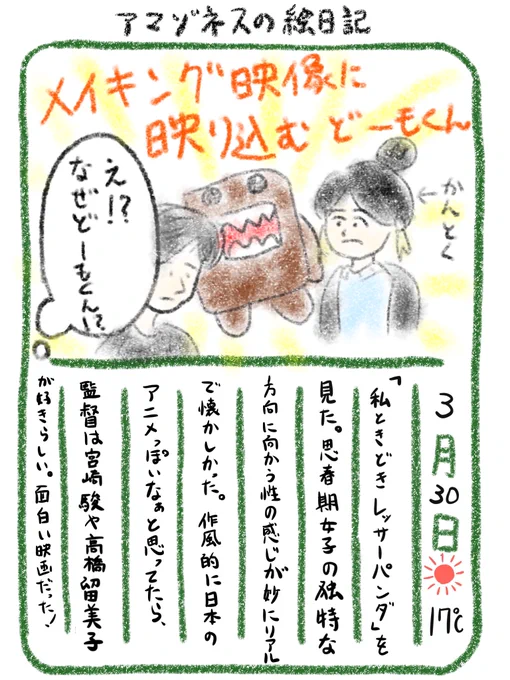 アマゾネスの絵日記
メイキング映像に
映り込むどーもくん
え!?
なぜどーもくん!?
←かんとく
3月30日
17℃
「私ときどきレッサーパンダ」を
見た。思春期女子の独特な
方向に向かう性の感じが妙にリアル
で懐かしかった。作風的に日本の
アニメっぽいなぁと思ってたら、
監督は宮崎駿や高橋留美子
が好きらしい。面白い映画だった！